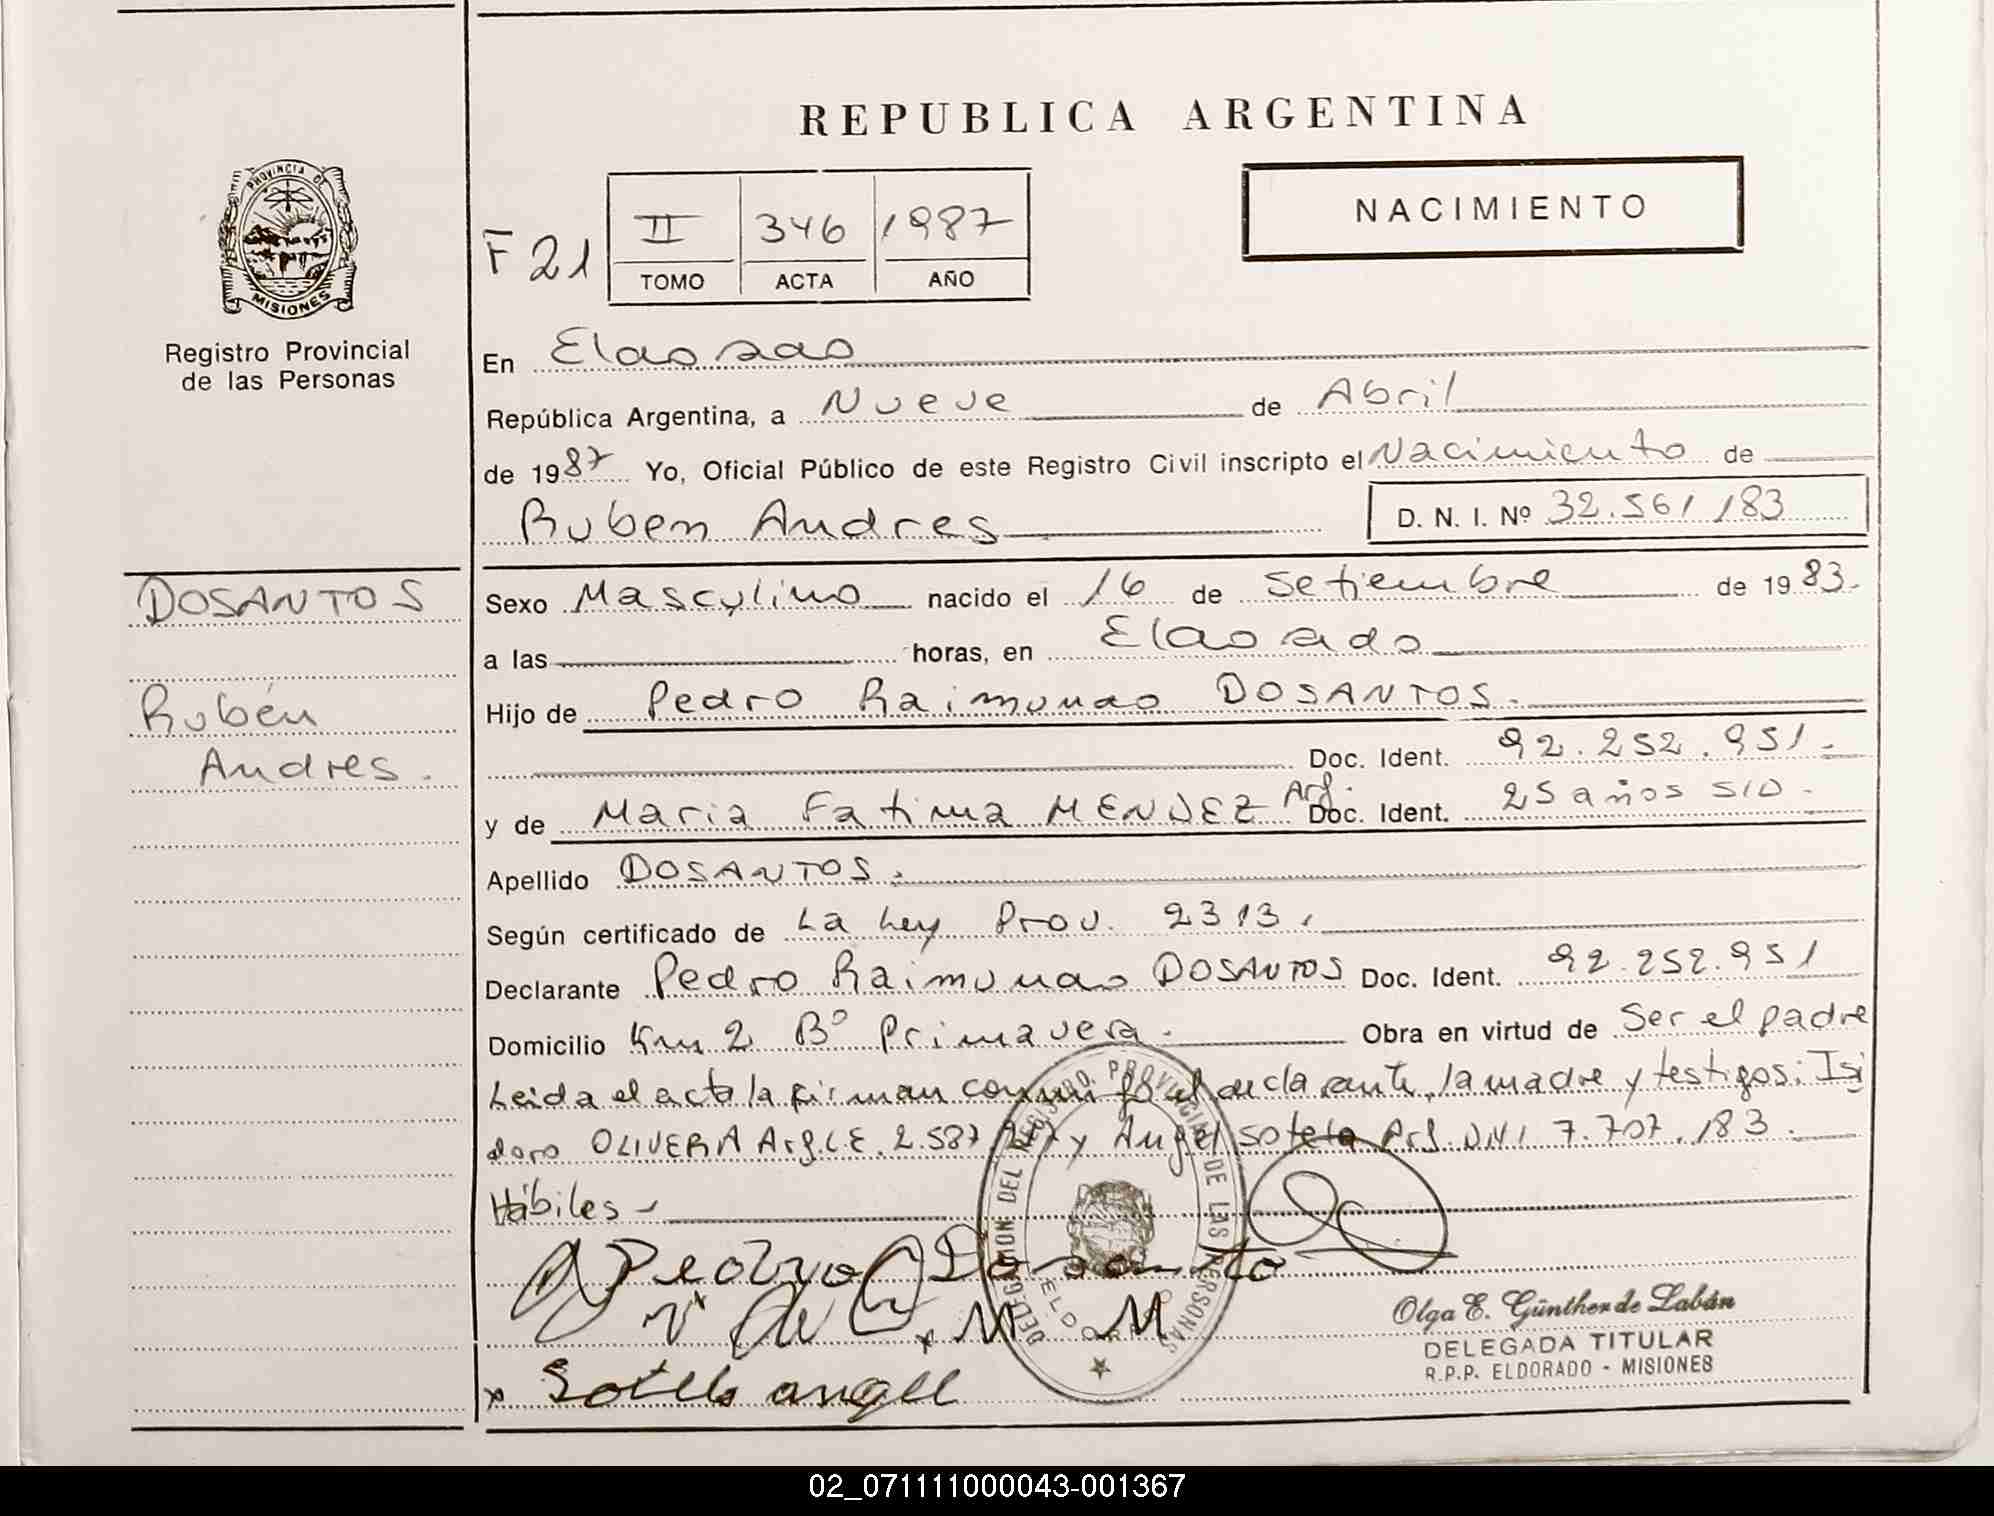 REPUBLICA ARGENTINA
PROVINCIA DE
MISIONES
Registro Provincial
de las Personas
F 21
II 346 1987
TOMO ACTA AÑO
NACIMIENTO
En Eldorado
República Argentina, a Nueve de Abril
de 1987 Yo, Oficial Público de este Registro Civil inscripto el Nacimiento de
Ruben Andres D. N. I. Nº 32.561.183
DOSANTOS
Rubén
Andres.
Sexo Masculino nacido el 16 de Setiembre de 1983.
a las horas, en Eldorado
Hijo de Pedro Raimundo DOSANTOS.
Doc. Ident. 92.252.951.
y de Maria Fatima MENDEZ Arg. Doc. Ident. 25 años S/D.
Apellido DOSANTOS.
Según certificado de La Ley Prov. 2313.
Declarante Pedro Raimundo DOSANTOS Doc. Ident. 92.252.951
Domicilio Km 2 Bº Primavera. Obra en virtud de Ser el padre
Leida el acta la firman conmigo el declarante, la madre y testigos: Isi
doro OLIVERA Arg. L.E. 2.587. y Angel Sotelo Arg. DNI 7.707.183.
Hábiles
Pedro Dosanto
M M
x Sotello angel
DELEGACION DEL REGISTRO PROVINCIAL DE LAS PERSONAS
ELDORADO
Olga E. Günther de Labán
DELEGADA TITULAR
R.P.P. ELDORADO - MISIONES
02_071111000043-001367